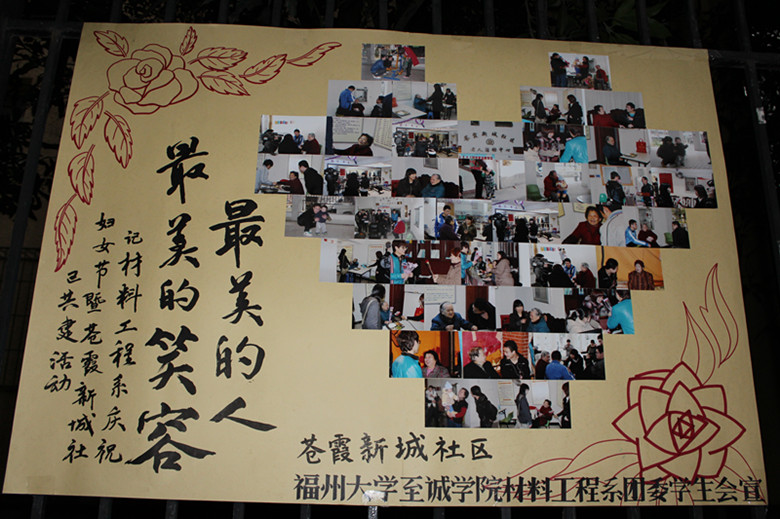 最美的人
最美的笑容
记材料工程系庆祝
妇女节暨苍霞新城社
区共建活动
苍霞新城社区
福州大学至诚学院材料工程系团委学生会宣